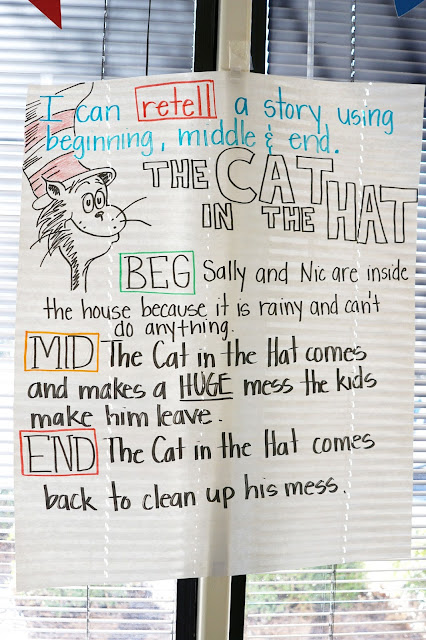 I can retell a story using
beginning, middle & end.
THE CAT
IN THE HAT
BEG Sally and Nic are inside
the house because it is rainy and can't
do anything.
MID The Cat in the Hat comes
and makes a HUGE mess the kids
make him leave.
END The Cat in the Hat comes
back to clean up his mess.